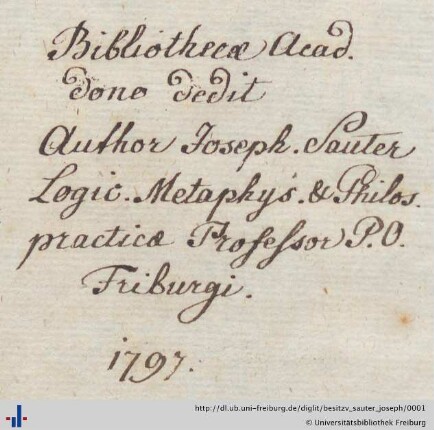 Bibliothecæ Acad.
dono dedit
Author Joseph. Sauter
Logic. Metaphys. & Philos.
practicæ Profeſsor P.O.
Friburgi.
1797.
http://dl.ub.uni-freiburg.de/diglit/besitzv_sauter_joseph/0001
© Universitätsbibliothek Freiburg